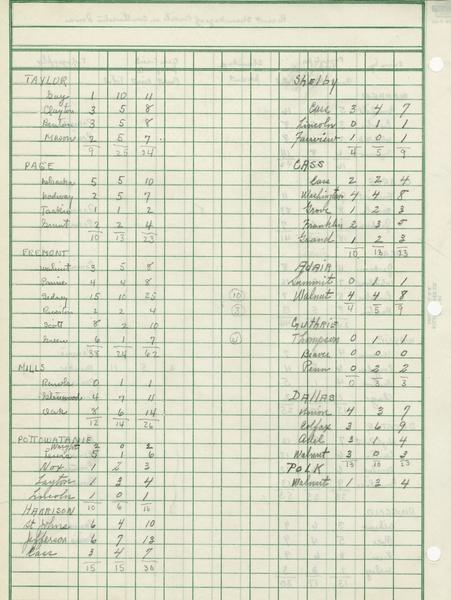 TAYLOR
Gay 1 10 11
Clayton 3 5 8
Benton 3 5 8
Mason 2 5 7
9 25 34
PAGE
Nebraska 5 5 10
Nodway 2 5 7
Tarkio 1 1 2
Grant 2 2 4
10 13 23
FREMONT
Walnut 3 5 8
4 4 8
Sidney 15 10 25
2 2 4
Scott 8 2 10
Green 6 1 7
38 24 62
MILLS
Rawls 0 1 1
Glenwood 4 7 11
Oak 8 6 14
12 14 26
POTTOWATAMIE
Wright 2 0 2
5 1 6
Nox 1 2 3
Layton 1 3 4
Lincoln 1 0 1
10 6 16
HARRISON
St Johns 6 4 10
Jefferson 6 7 13
Cass 3 4 7
15 15 30
Shelby
Cass 3 4 7
Lincoln 0 1 1
Fairview 1 0 1
4 5 9
CASS
Cass 2 2 4
Washington 4 4 8
Grove 1 2 3
Franklin 2 3 5
Grand 1 2 3
10 13 23
Adair
Summit 0 1 1
Walnut 4 4 8
4 5 9
Guthrie
Thompson 0 1 1
Beaver 0 0 0
Penn 0 2 2
0 3 3
DALLAS
Union 4 3 7
Colfax 3 6 9
Adel 3 1 4
Walnut 3 0 3
13 10 23
POLK
Walnut 1 3 4